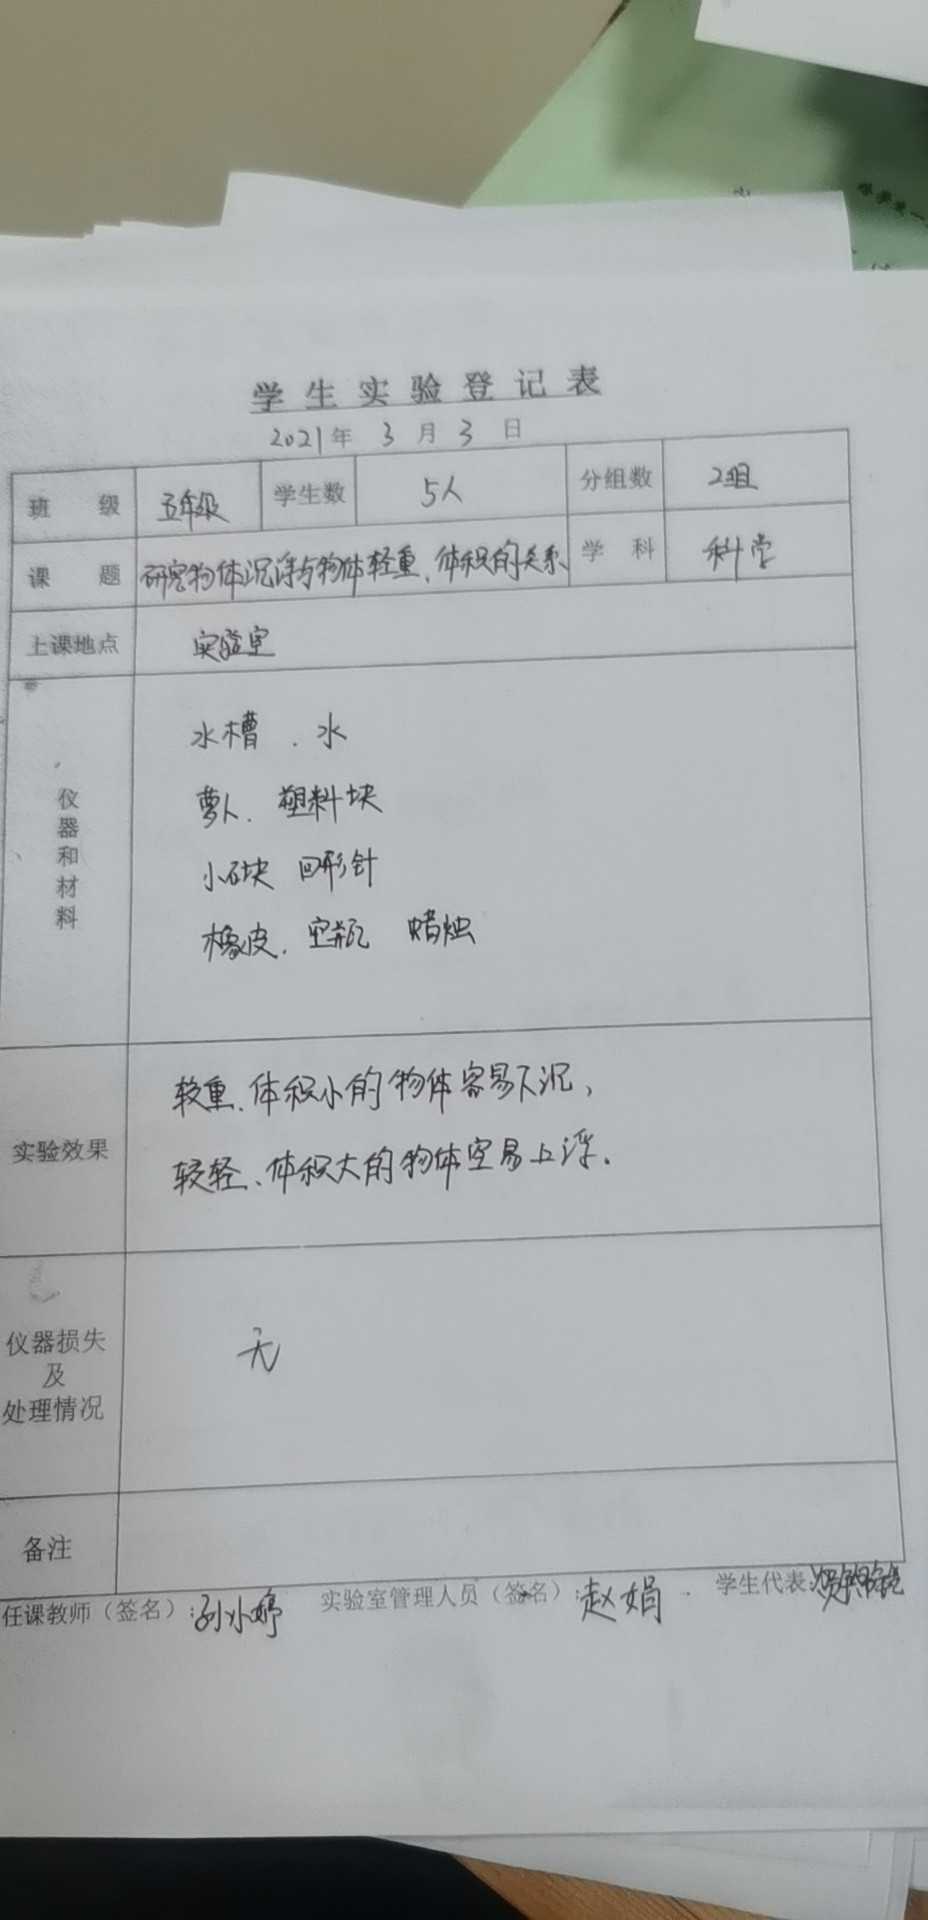 学生实验登记表
2021年 3 月 3 日
班 级 五年级 学生数 5人 分组数 2组
课 题 研究物体沉浮与物体轻重、体积的关系 学 科 科学
上课地点 实验室
仪器和材料
水槽 . 水
萝卜. 塑料块
小石块 回形针
橡皮. 空瓶 蜡烛
实验效果
较重、体积小的物体容易下沉,
较轻、体积大的物体容易上浮.
仪器损失
及
处理情况
无
备注
任课教师(签名):孙小婷 实验室管理人员(签名):赵娟 学生代表: